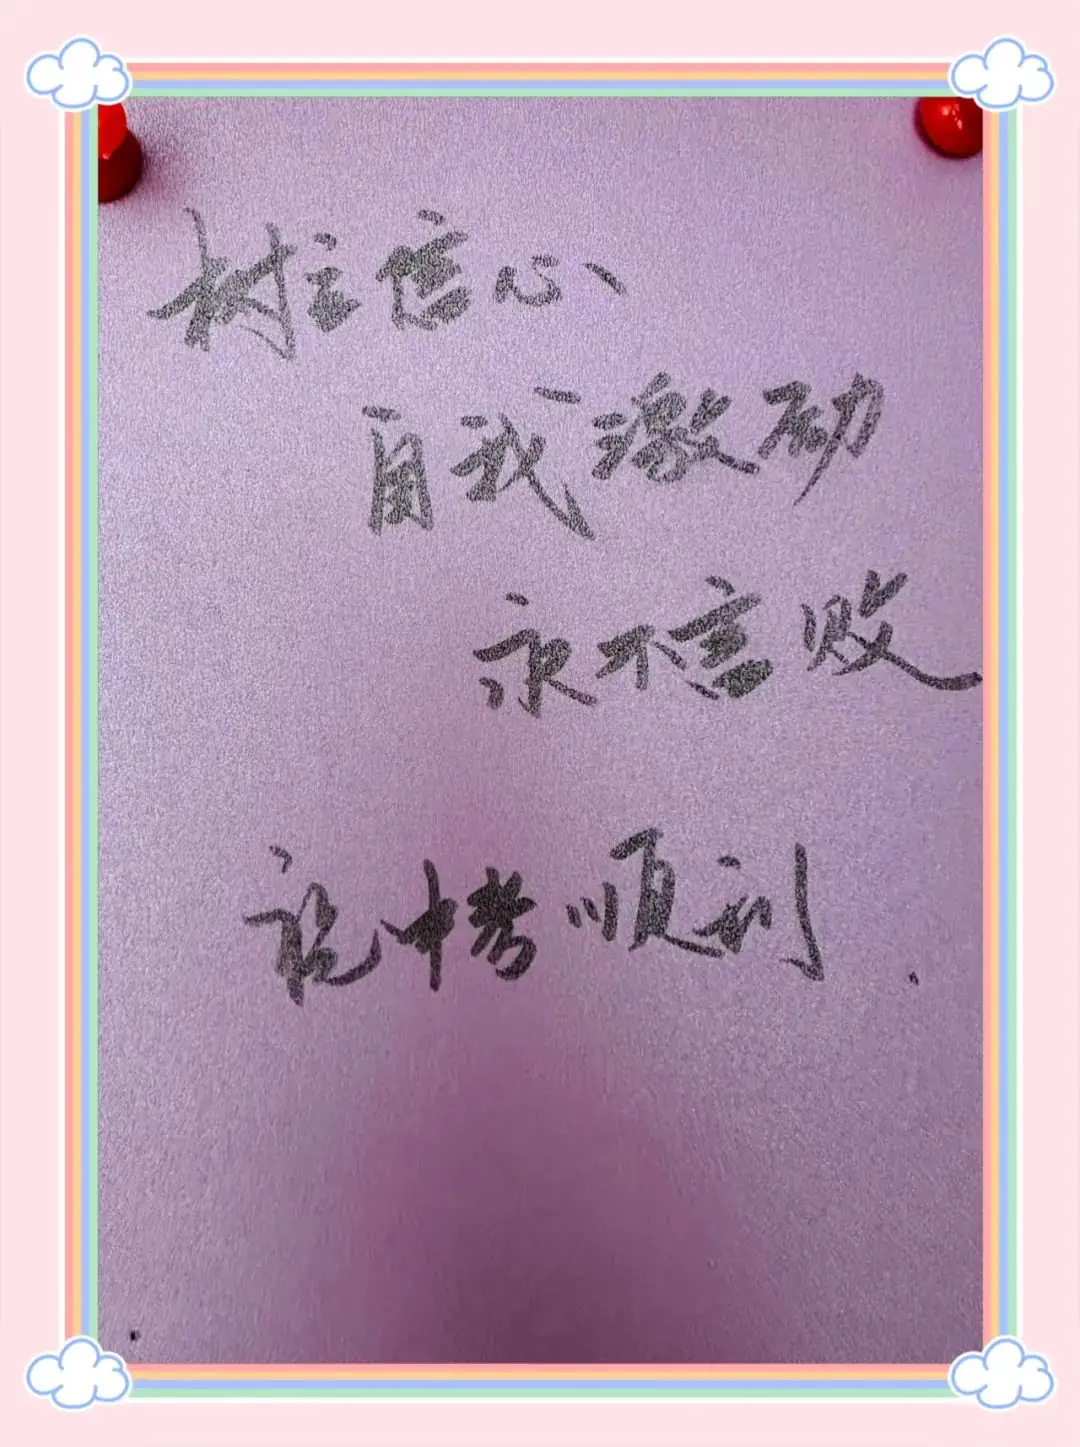 树立信心
自我激励
永不言败
祝中考顺利